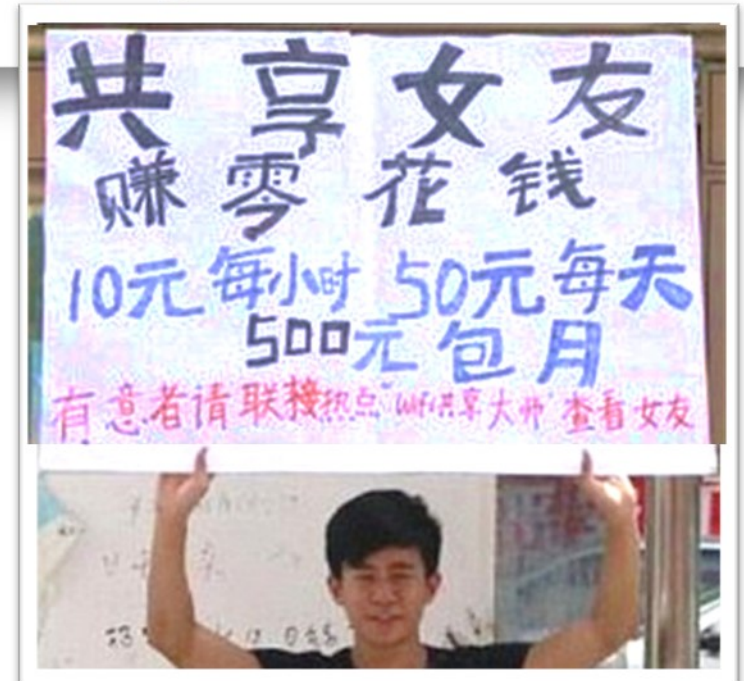 共享女友
赚零花钱
10元每小时 50元每天
500元包月
有意者请联接热点 wifi共享大师 查看女友